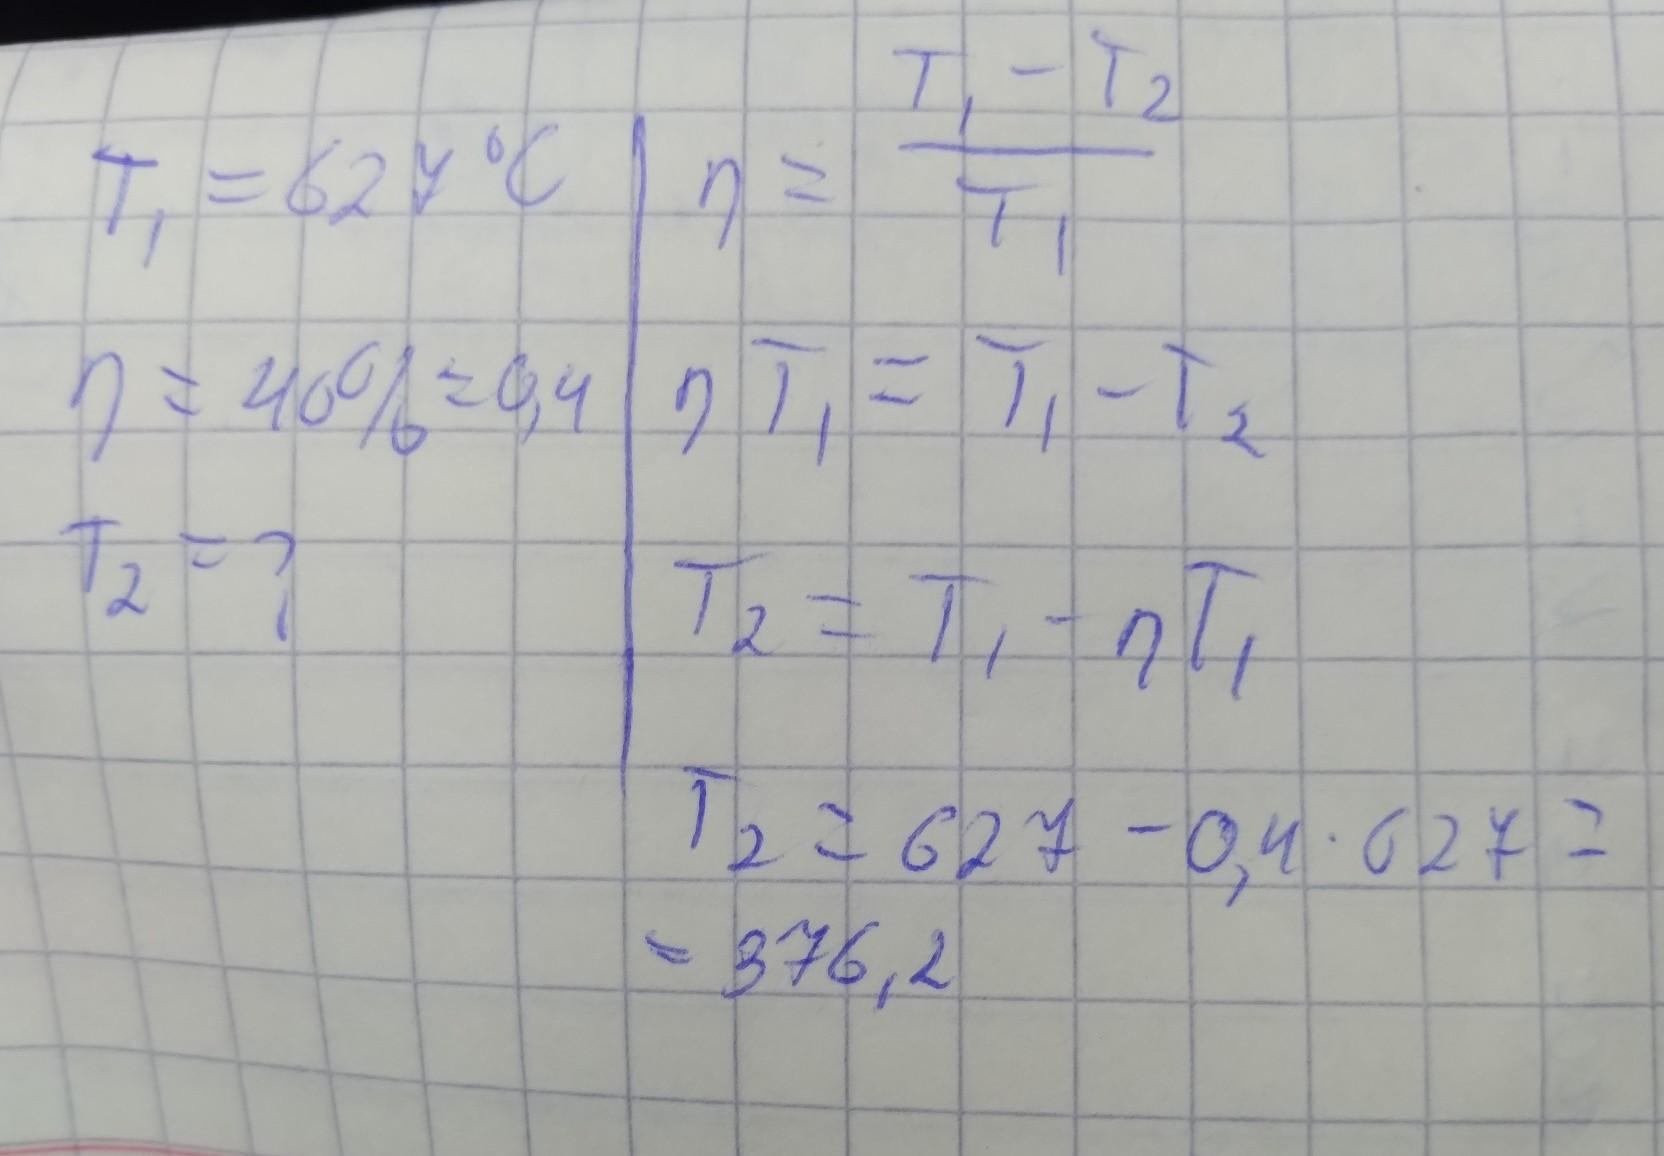 T₁ = 627 °C
η = 40% = 0,4
T₂ = ?
η = (T₁ - T₂) / T₁
η T₁ = T₁ - T₂
T₂ = T₁ - η T₁
T₂ = 627 - 0,4 · 627 =
= 376,2